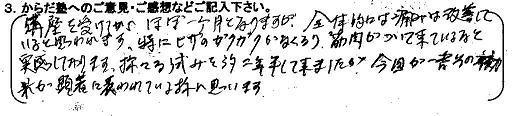 3. からだ塾へのご意見・ご感想などご記入下さい。
講座を受けてから ほぼ一ヶ月となりますが、全体的には痛みは改善して
いると思われます。特にヒザのガクガクがなくなり、筋肉がついて来ているなと
実感しております。 試みを 二年半して来ましたが 今回が一番その効
果が顕著に表われている様に思います